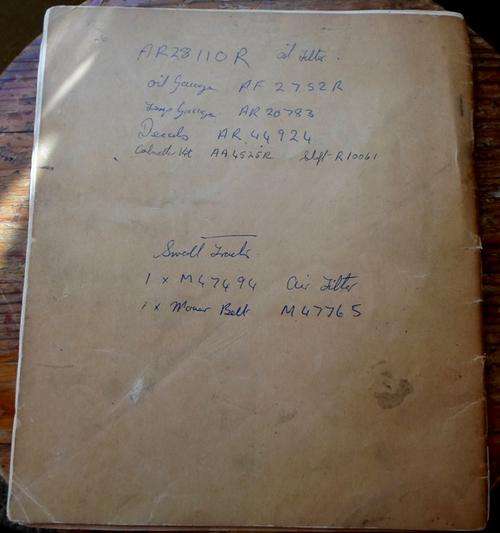 AR28110R oil Filter.
oil Gauge AF 2752R
Temp Gauge AR 20783
Decals AR 44924
Kit AA4525R Shft R10061
Small Tractor
1 x M47494 Air Filter
1 x Mower Belt M47765